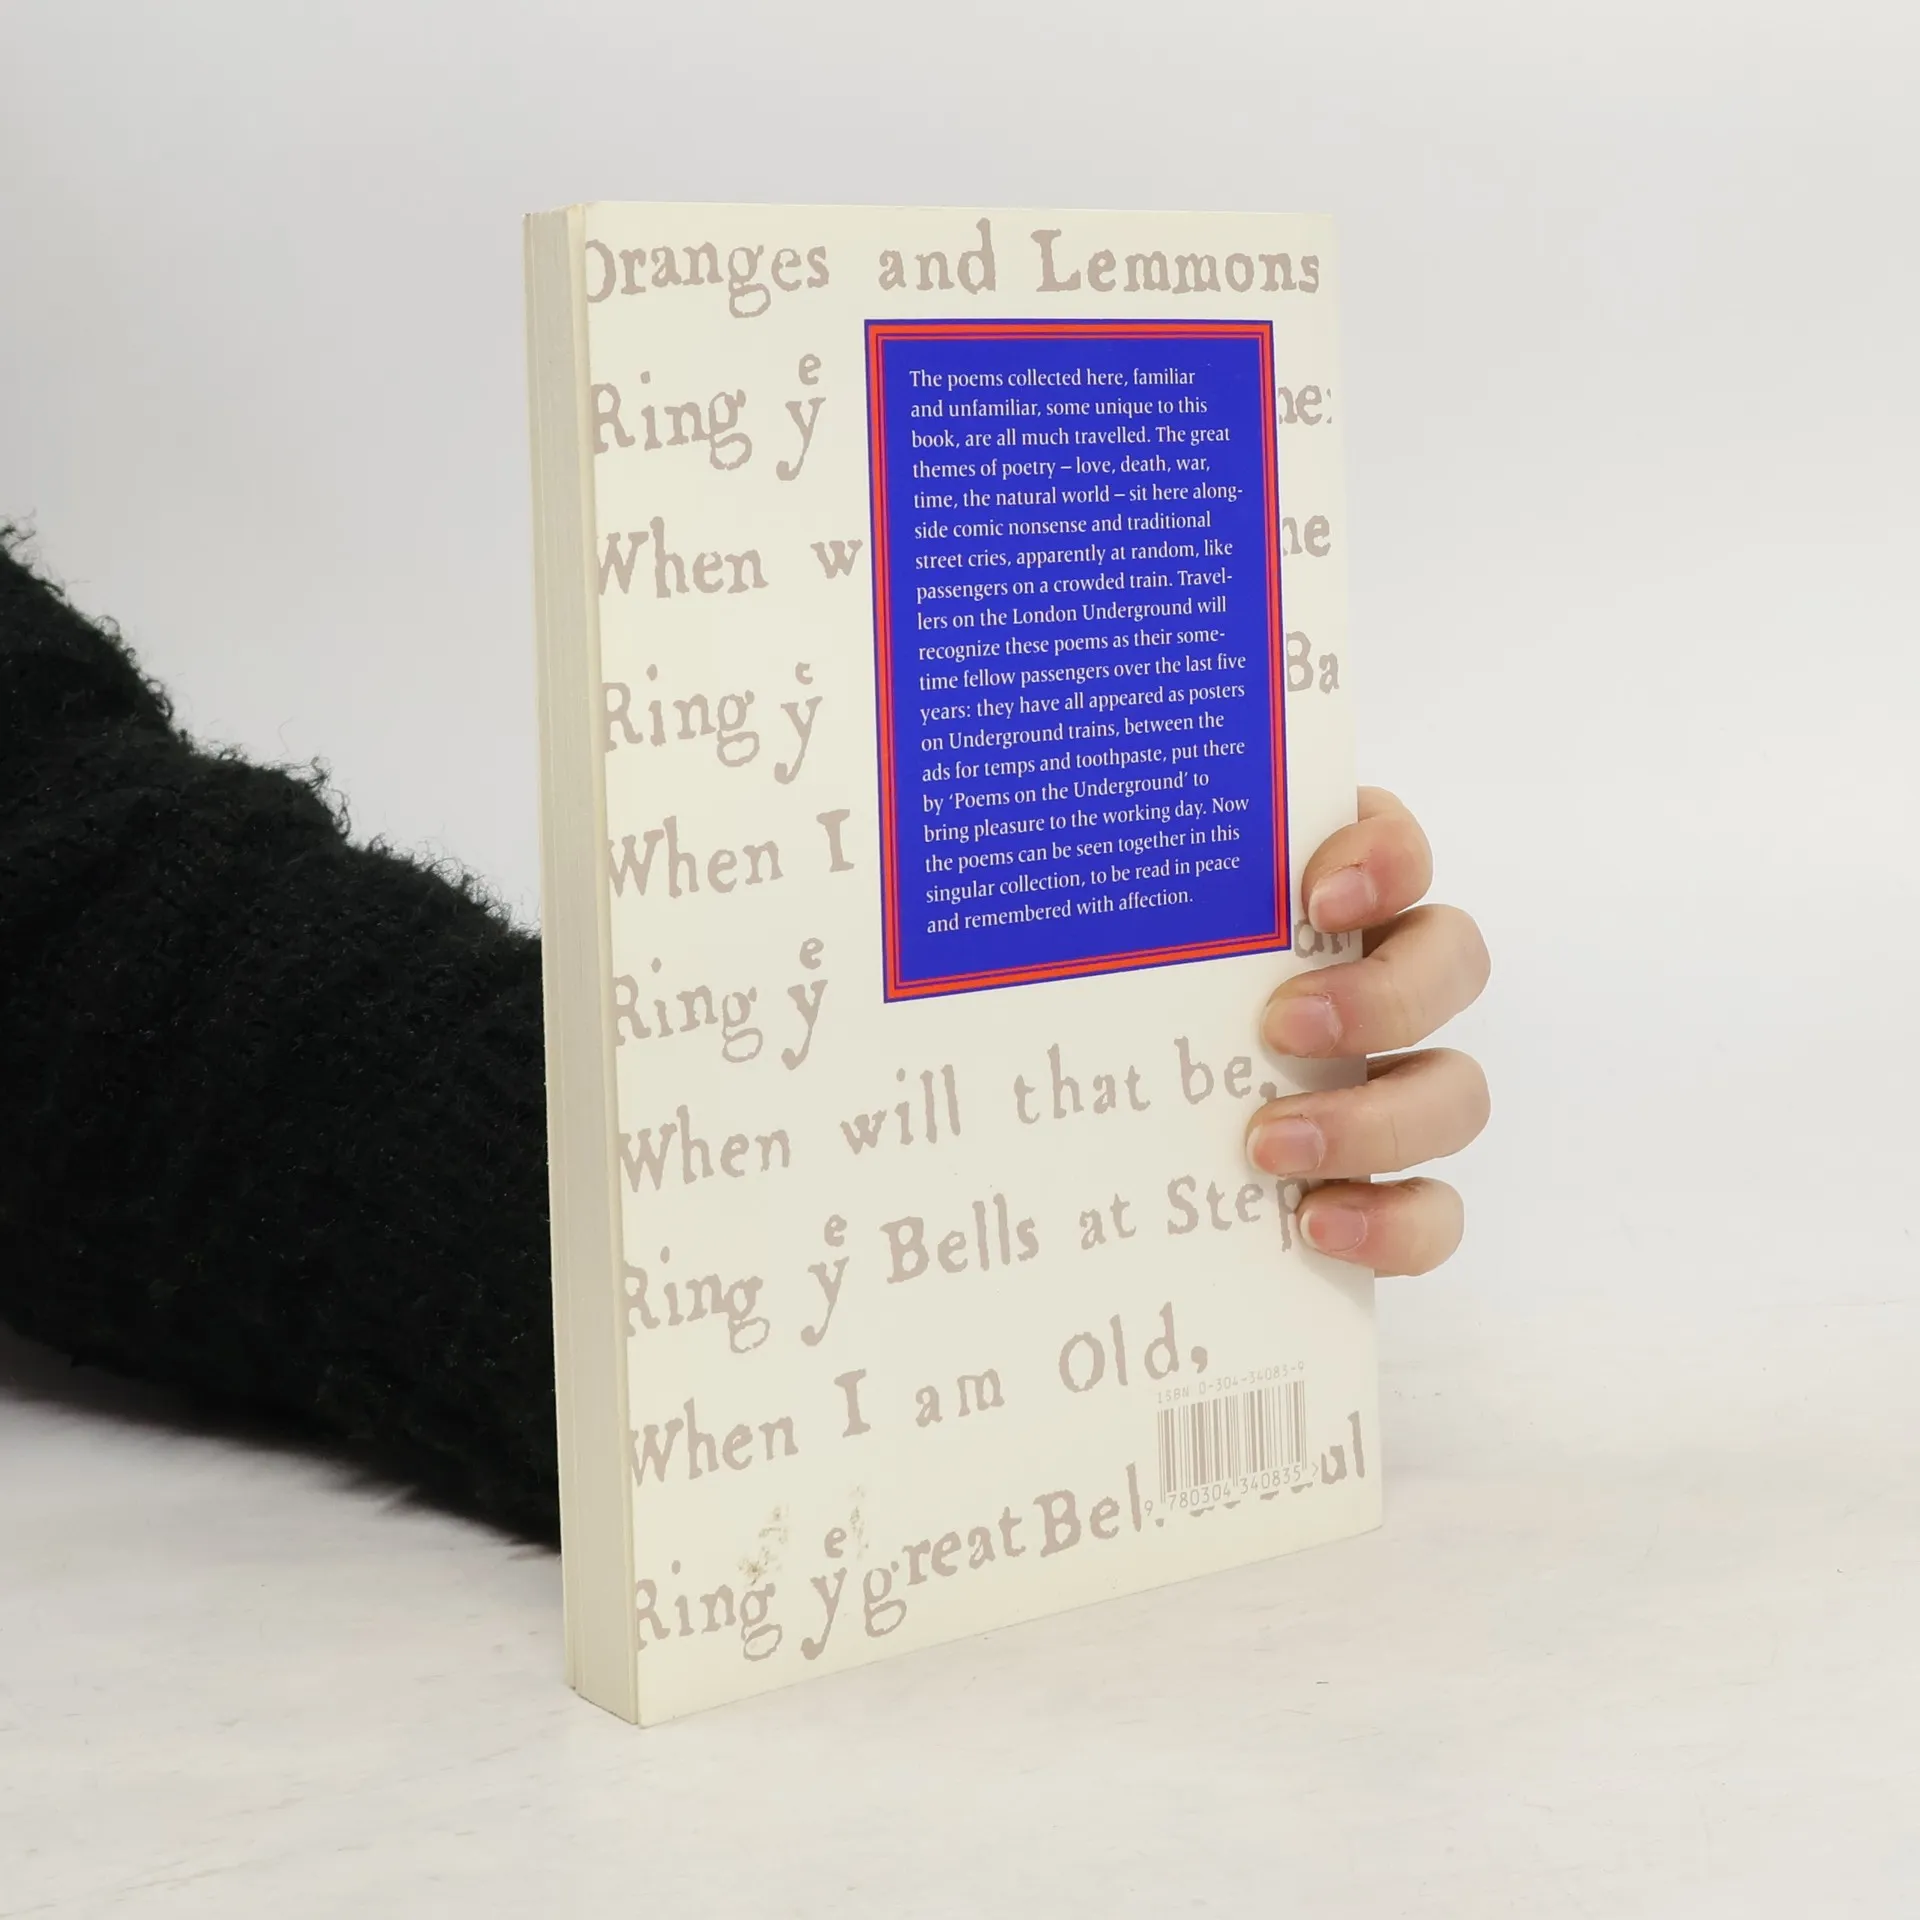 Oranges and Lemmons
Ring yͤ
When w
Ring yͤ
Ba
When I
Ring yͤ
When will that be,
Ring yͤ Bells at Step
When I am Old,
Ring yͤ great Bel
The poems collected here, familiar
and unfamiliar, some unique to this
book, are all much travelled. The great
themes of poetry – love, death, war,
time, the natural world – sit here along-
side comic nonsense and traditional
street cries, apparently at random, like
passengers on a crowded train. Travel-
lers on the London Underground will
recognize these poems as their some-
time fellow passengers over the last five
years: they have all appeared as posters
on Underground trains, between the
ads for temps and toothpaste, put there
by ‘Poems on the Underground’ to
bring pleasure to the working day. Now
the poems can be seen together in this
singular collection, to be read in peace
and remembered with affection.
ISBN 0-304-34083-9
9 780304 340835 >